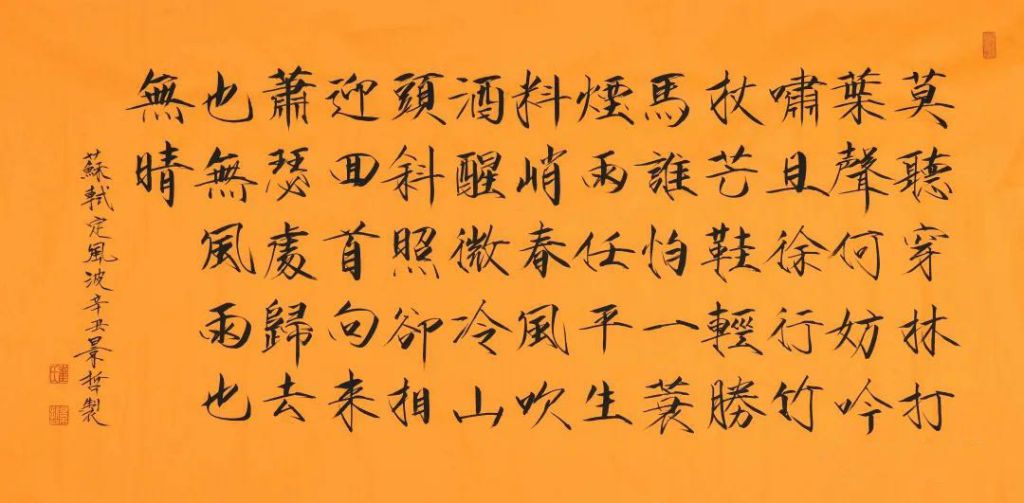 莫聽穿林打
葉聲何妨吟
嘯且徐行竹
杖芒鞋輕勝
馬誰怕一蓑
煙雨任平生
料峭春風吹
酒醒微冷山
頭斜照卻相
迎回首向来
蕭瑟處歸去
也無風雨也
無晴
蘇軾定風波辛丑景哲製